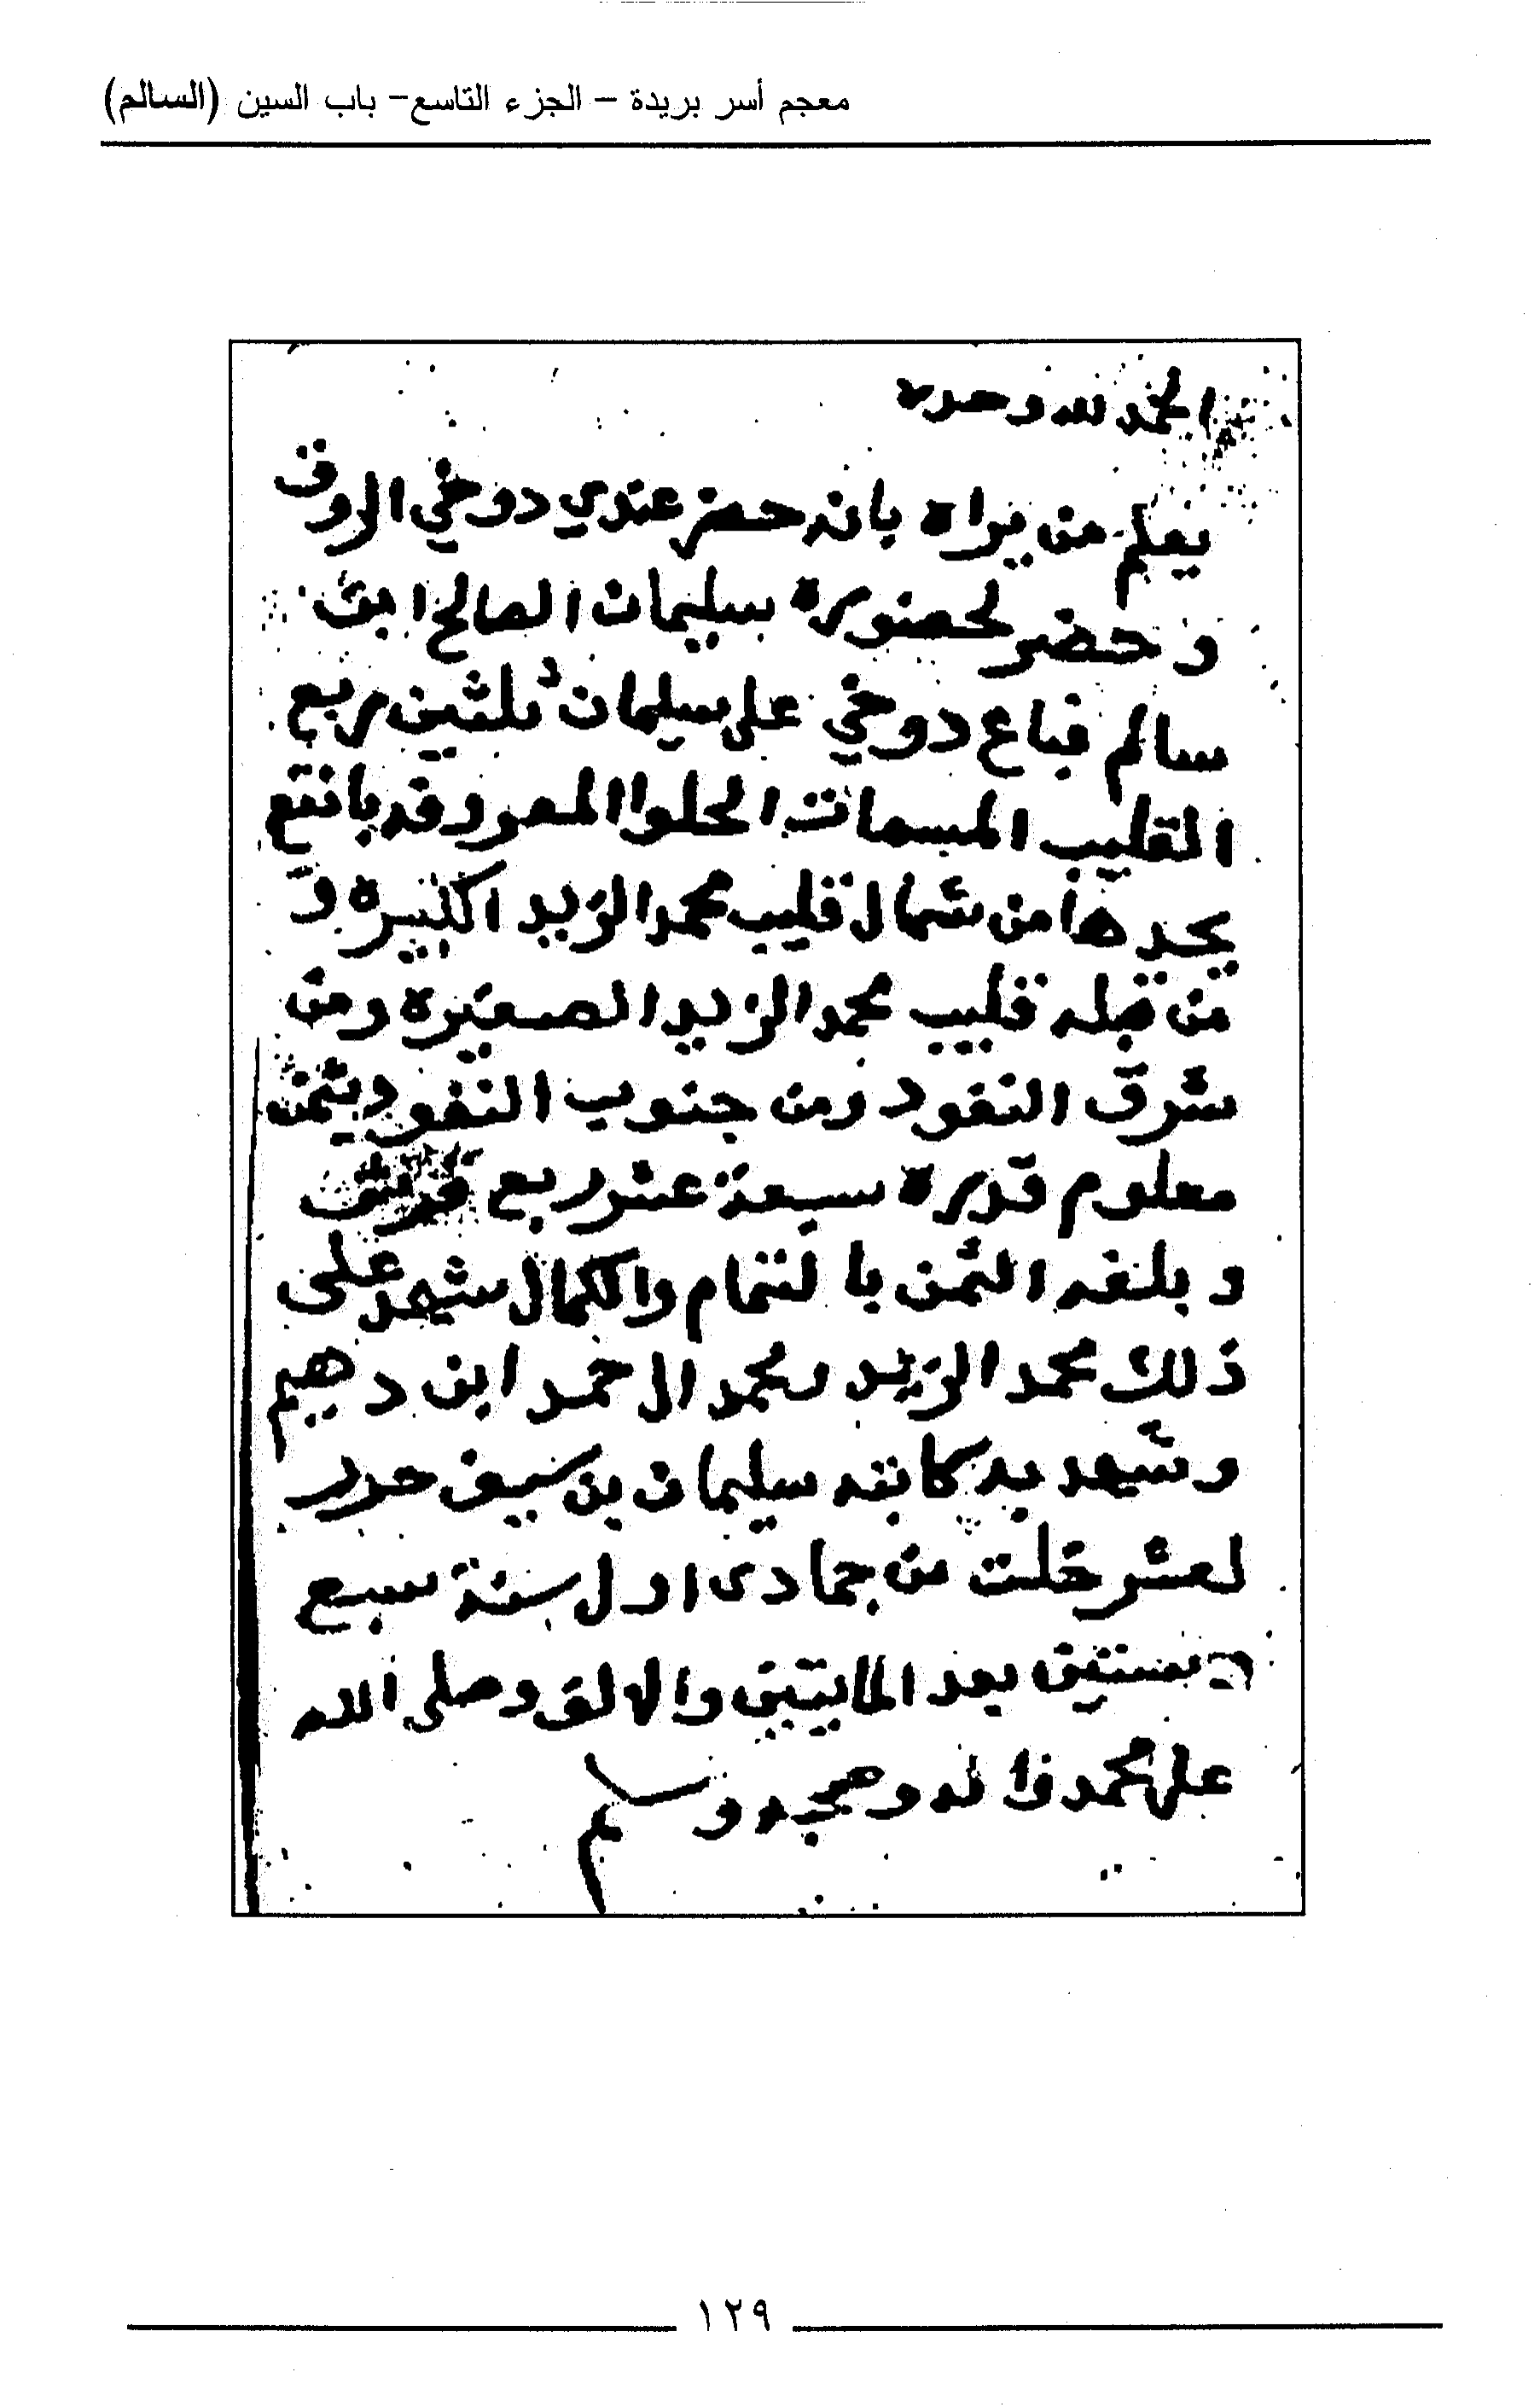 معجم أسر بريدة – الجزء التاسع– باب السين (السالم)
الحمد لله وحده
يعلم من يراه بانه حضر عندي دوخي الروق
وحضر لحضوره سليمان الصالح ابن
سالم فباع دوخي على سليمان ثلثين ربع
القليب المسمات الحلوا المعروفه بانتع
يحدها من شمال قليب محمد الزيد اكبيره و
من قبله قليب محمد الزيد الصغيره ومن
شرق النفود ومن جنوب النفود بثمن
معلوم قدره سبعة عشر ربع قرش
وبلغه الثمن بالتمام والكمال شهد على
ذلك محمد الزيد ومحمد ال حمد ابن دهيم
وشهد به كاتبه سليمان بن سيف حرر
لعشر خلت من جمادى اول سنة سبع
وستين بعد المايتين والالف وصلى الله
على محمد واله وصحبه وسلم
١٢٩